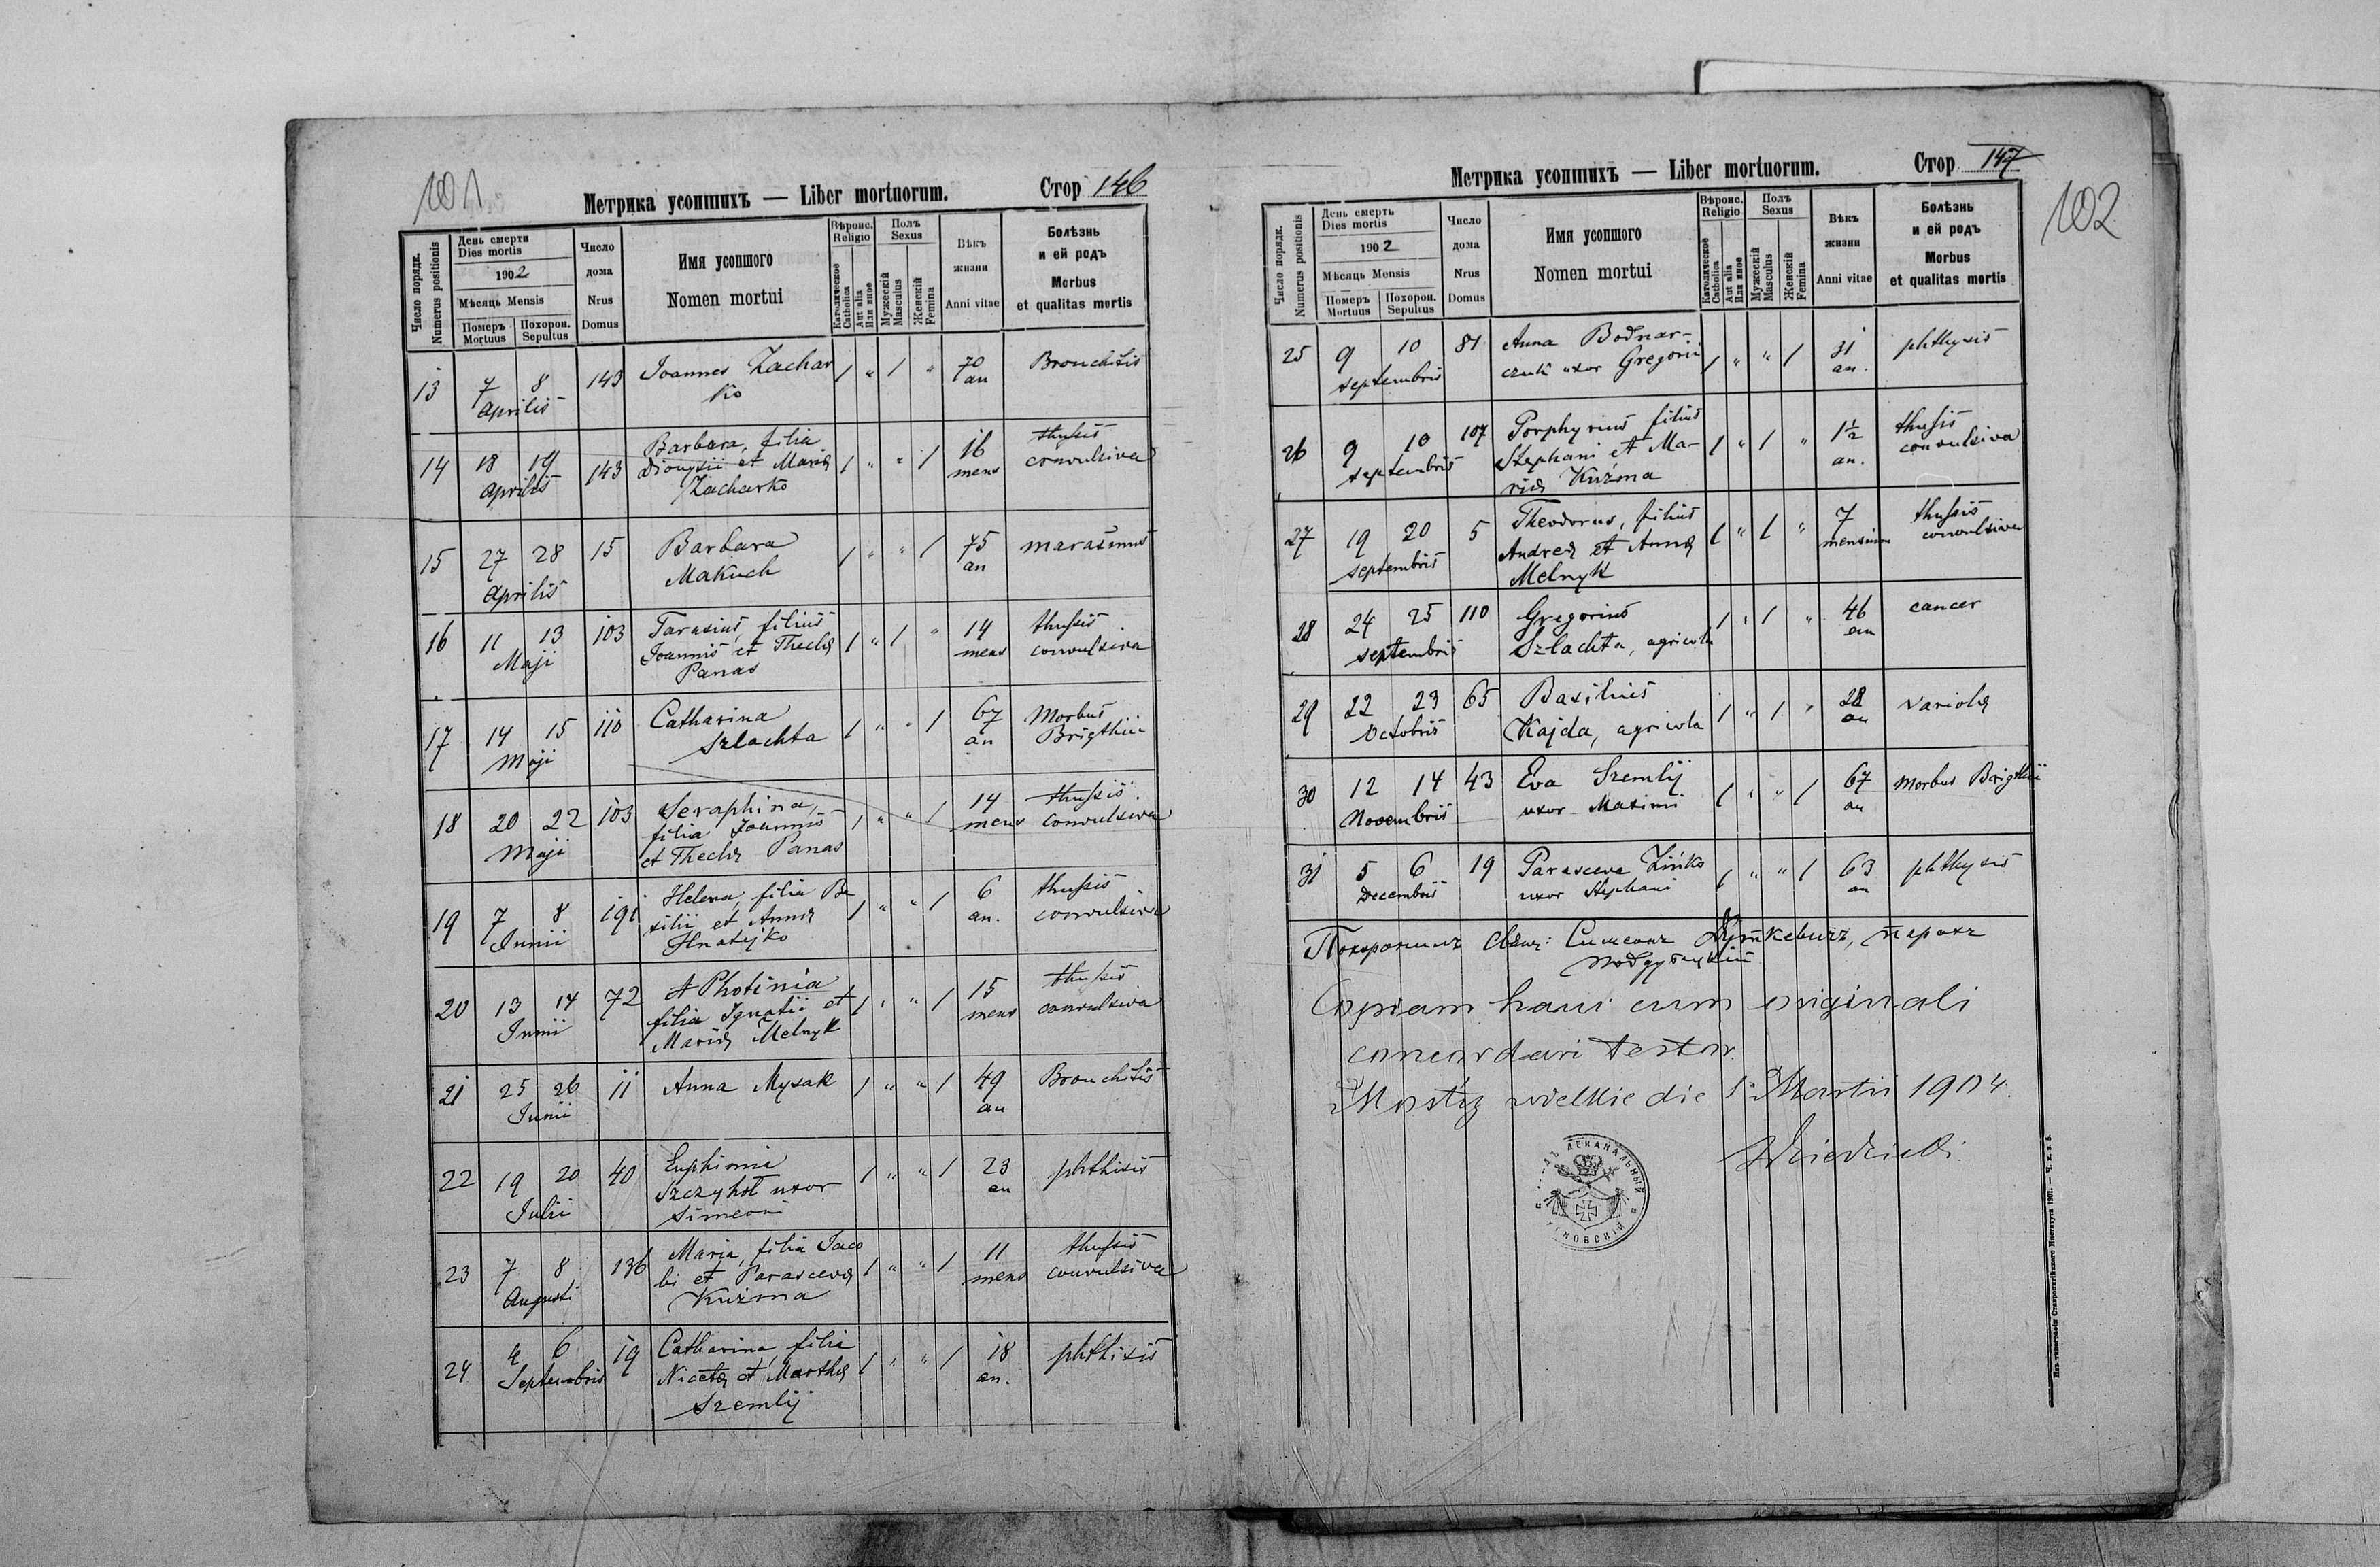 101
Метрика усопшихъ — Liber mortuorum.
Стор 146
Число порядк.
Numerus positionis
День смерти
Dies mortis
1902
Мѣсяць Mensis
Померъ
Mortuus
Похорон.
Sepultus
Число
дома
Nrus
Domus
Имя усопшого
Nomen mortui
Вѣроис.
Religio
Католическое
Catholica
Aut alia
Или иное
Полъ
Sexus
Мужескій
Masculus
Женскій
Femina
Вѣкъ
жизни
Anni vitae
Болѣзнь
и ей родъ
Morbus
et qualitas mortis
13 7 8 143 Joannes Zachar 1 " 1 " 70 Bronchitis
Aprilis ko an
14 18 19 143 Barbara, filia 1 " " 1 16 thussis
Aprilis Dionysii et Mariæ mens convulsiva
Zacharko
15 27 28 15 Barbara 1 " " 1 75 marasmus
Aprilis Makuch an
16 11 13 103 Tarasius, filius 1 " 1 " 14 thussis
Maji Joannis et Theclæ mens convulsiva
Panas
17 14 15 110 Catharina 1 " " 1 67 Morbus
Maji Szlachta an Brigthii
18 20 22 103 Seraphina, 1 " " 1 14 thussis
Maji filia Joannis mens convulsiva
et Theclæ Panas
19 7 8 191 Helena, filia Ba 1 " " 1 6 thussis
Junii silii et Annæ an. convulsiva
Hnatejko
20 13 14 72 Photinia 1 " " 1 15 thussis
Junii filia Ignatii et mens convulsiva
Mariæ Melnyk
21 25 26 11 Anna Mysak 1 " " 1 49 Bronchitis
Junii an
22 19 20 40 Euphimia 1 " " 1 23 phthisis
Julii Szczyhot uxor an
Simeoni
23 7 8 136 Maria, filia Jaco 1 " " 1 11 thussis
Augusti bi et Parascevæ mens convulsiva
Kuźma
24 4 6 19 Catharina, filia 1 " " 1 18 phthisis
Septembris Nicetæ et Marthæ an.
Szemlij
Метрика усопшихъ — Liber mortuorum.
Стор 147
102
Число порядк.
Numerus positionis
День смерть
Dies mortis
1902
Мѣсяць Mensis
Померъ
Mortuus
Похорон.
Sepultus
Число
дома
Nrus
Domus
Имя усопшого
Nomen mortui
Вѣроис.
Religio
Католическое
Catholica
Aut alia
Или иное
Полъ
Sexus
Мужескій
Masculus
Женскій
Femina
Вѣкъ
жизни
Anni vitae
Болѣзнь
и ей родъ
Morbus
et qualitas mortis
25 9 10 81 Anna Bodnar- 1 " " 1 31 phthysis
septembris czuk uxor Gregorii an.
26 9 10 107 Porphyrius filius 1 " 1 " 1½ thussis
septembris Stephani et Ma- an. convulsiva
riæ Kuźma
27 19 20 5 Theodorus, filius 1 " 1 " 7 thussis
septembris Andreæ et Annæ mensium convulsiva
Melnyk
28 24 25 110 Gregorius 1 " 1 " 46 cancer
septembris Szlachta, agricola an
29 22 23 65 Basilius 1 " 1 " 28 variolæ
Octobris Kajda, agricola an
30 12 14 43 Eva Szemlij 1 " " 1 67 Morbus Brigthii
Novembris uxor Maximi an
31 5 6 19 Parasceva Zińko 1 " " 1 63 phthysis
Decembris uxor Stephani an
Похоронилъ Свящ: Симеонъ
Copiam hanc cum originali
concordari testor.
Mosty wielkie die 1 Martii 1904.
ДЕКАНАЛЬНЫЙ
Изъ типографіи Ставропигійского Института 1901.